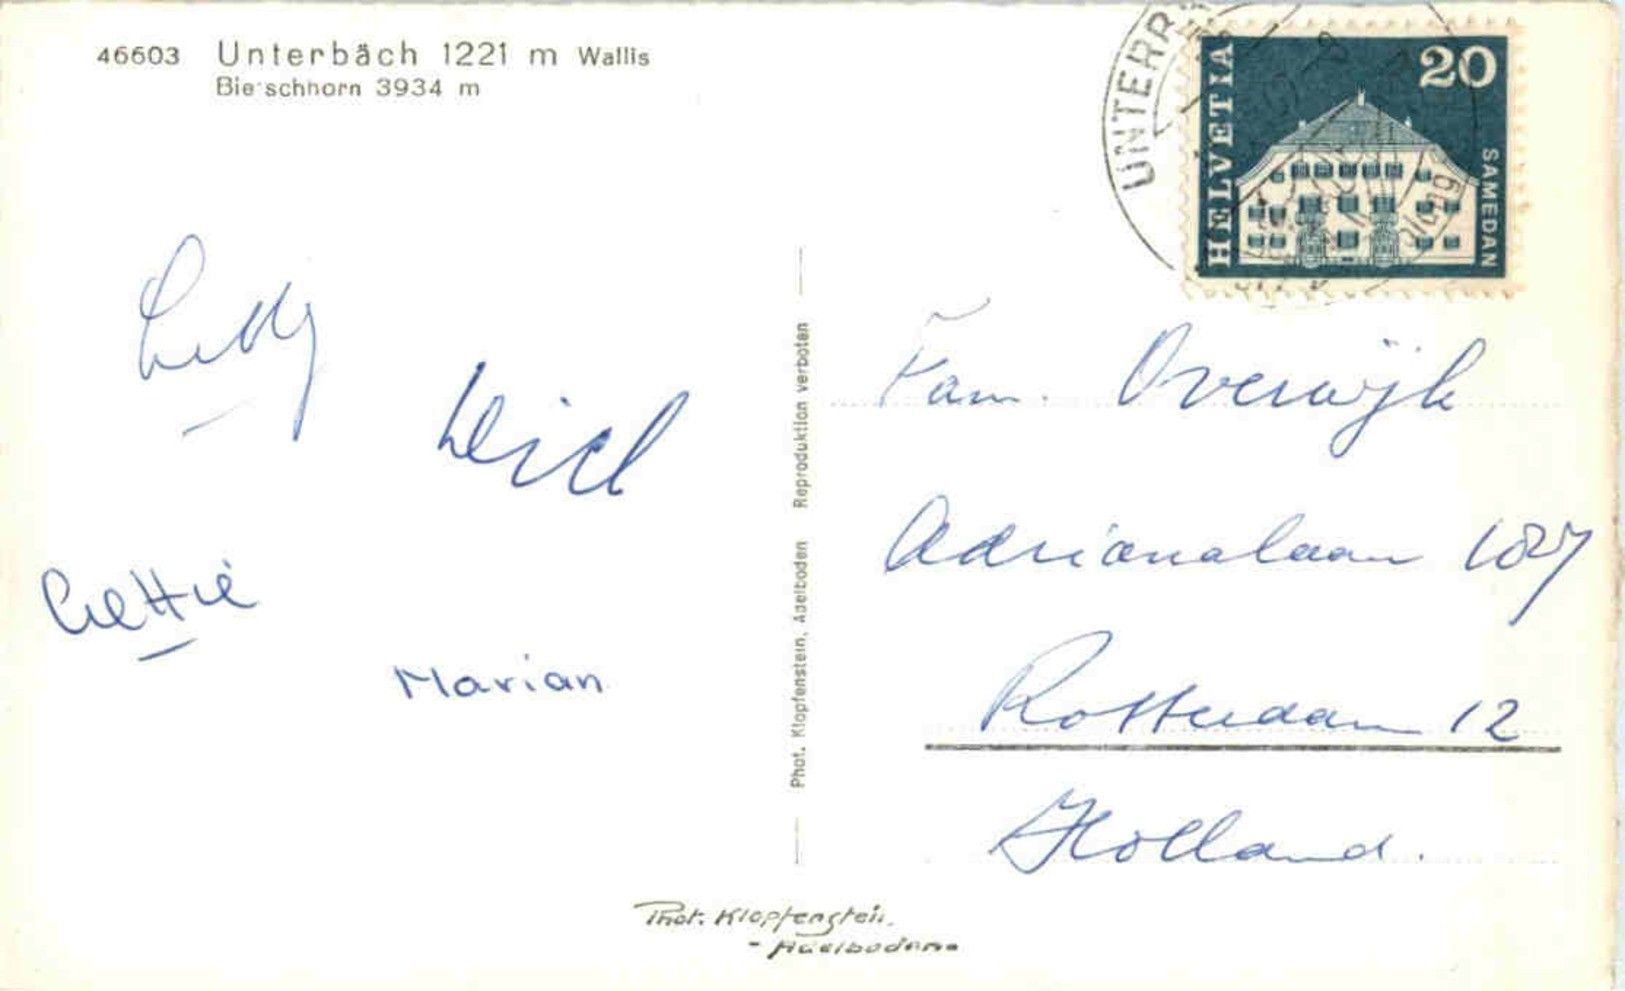 46603 Unterbäch 1221 m Wallis
Bietschhorn 3934 m
UNTERB
HELVETIA
20
SAMEDAN
Phot. Klopfenstein, Adelboden Reproduktion verboten
Marian
Fam. Overwijk
Adrianalaan 187
Rotterdam 12
Holland.
Phot. Klopfenstein.
- Adelboden